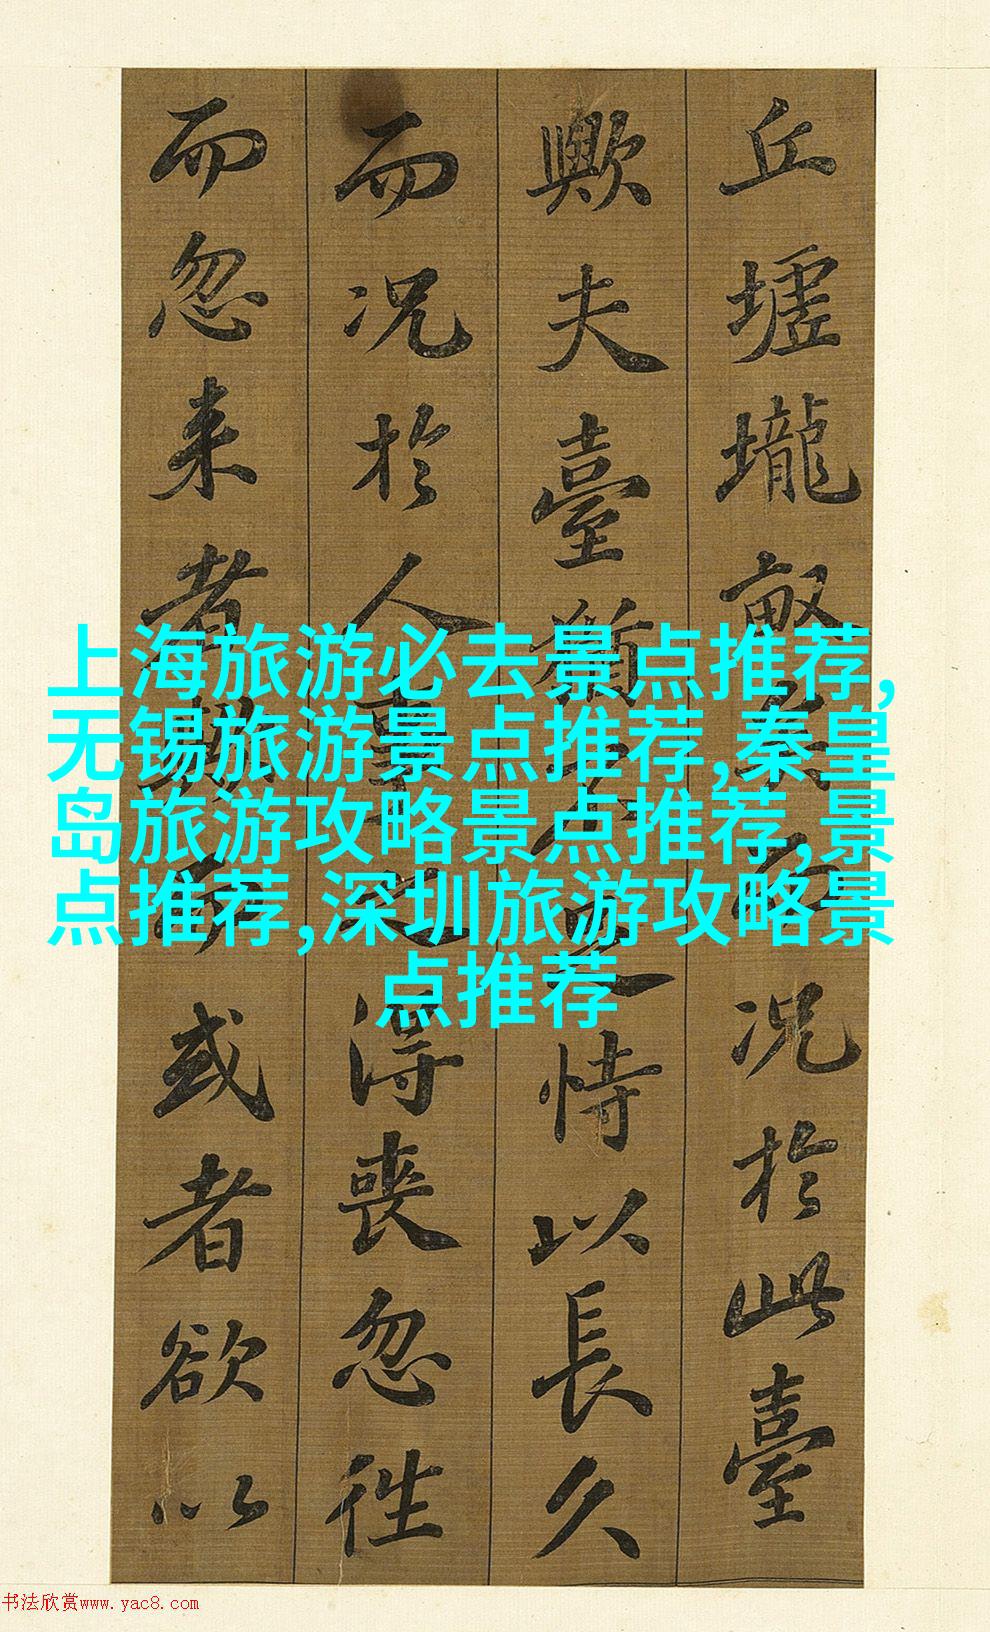 丘墟壠畝矣而况於此臺
歟夫臺猶不足恃以長久
而况於人事之得喪忽往
而忽来者歟而或者欲以
上海旅游必去景点推荐,
无锡旅游景点推荐,秦皇
岛旅游攻略景点推荐,景
点推荐,深圳旅游攻略景
点推荐
书法欣赏www.yac8.com